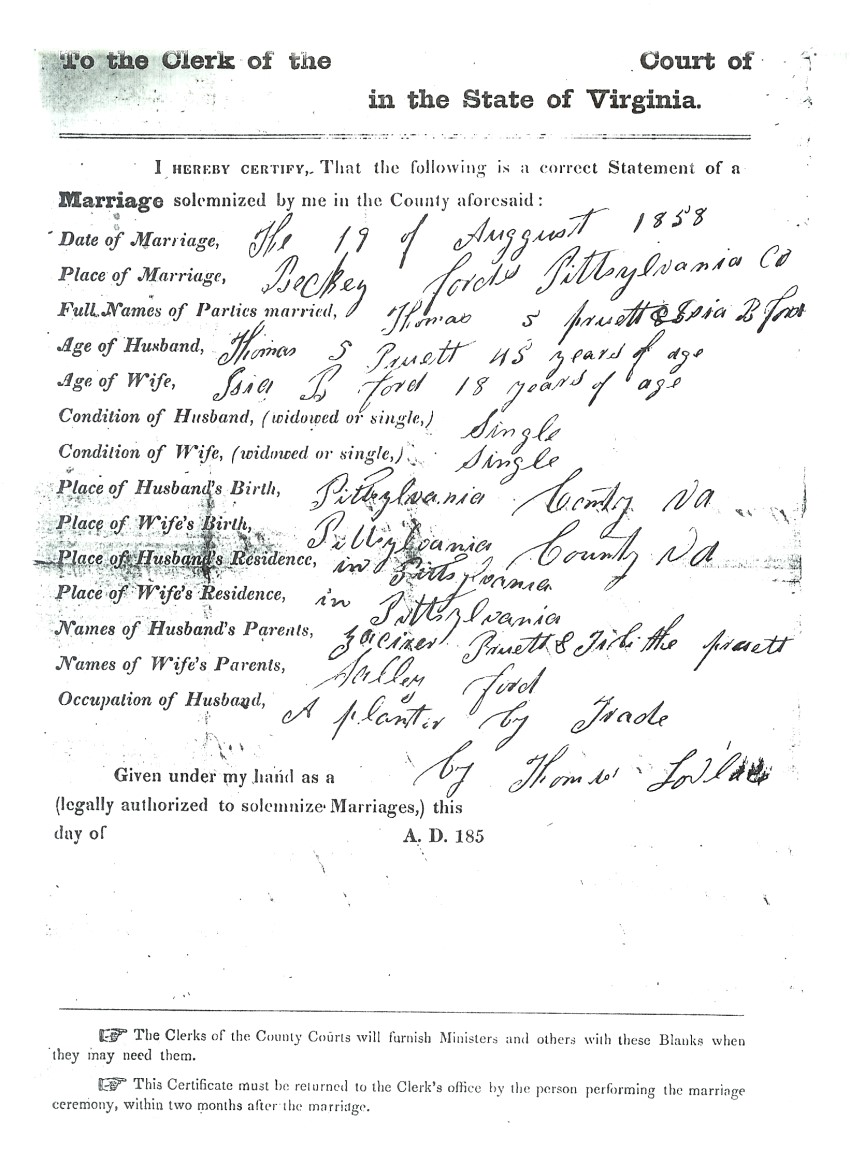 To the Clerk of the Court of
in the State of Virginia.
I HEREBY CERTIFY, That the following is a correct Statement of a
Marriage solemnized by me in the County aforesaid:
Date of Marriage, The 19 of Auggust 1858
Place of Marriage, Beckey fords Pittsylvania Co
Full Names of Parties married, Thomas S pruett & Isia B ford
Age of Husband, Thomas S Pruett 45 years of age
Age of Wife, Isia B ford 18 years of age
Condition of Husband, (widowed or single,) Single
Condition of Wife, (widowed or single,) Single
Place of Husband's Birth, Pittsylvania County Va
Place of Wife's Birth, Pittsylvania County Va
Place of Husband's Residence, in Pittsylvania
Place of Wife's Residence, in Pittsylvania
Names of Husband's Parents, Pruett & pruett
Names of Wife's Parents, Salley ford
Occupation of Husband, A planter by Trade
Given under my hand as a by Thomas
(legally authorized to solemnize Marriages,) this
day of A. D. 185
☞ The Clerks of the County Courts will furnish Ministers and others with these Blanks when
they may need them.
☞ This Certificate must be returned to the Clerk's office by the person performing the marriage
ceremony, within two months after the marriage.